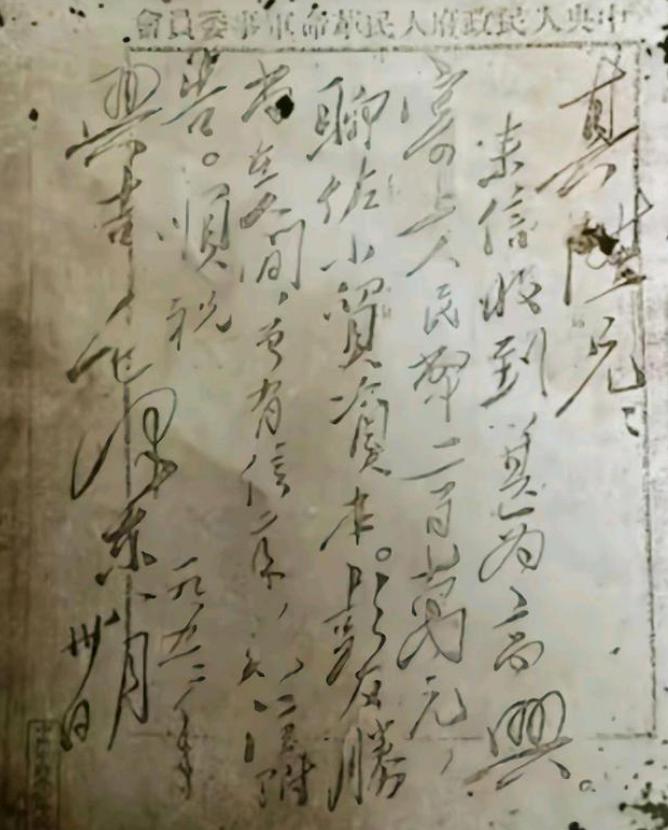 中央人民政府人民革命軍事委員會
其陞兄：
來信收到，甚為高興。
寄上人民幣二百萬元，
聊佐小貿資本。彭友勝
尚在人間，曾有信，知注附
告。順祝
興吉
毛澤東
一九五二年
月
卅日